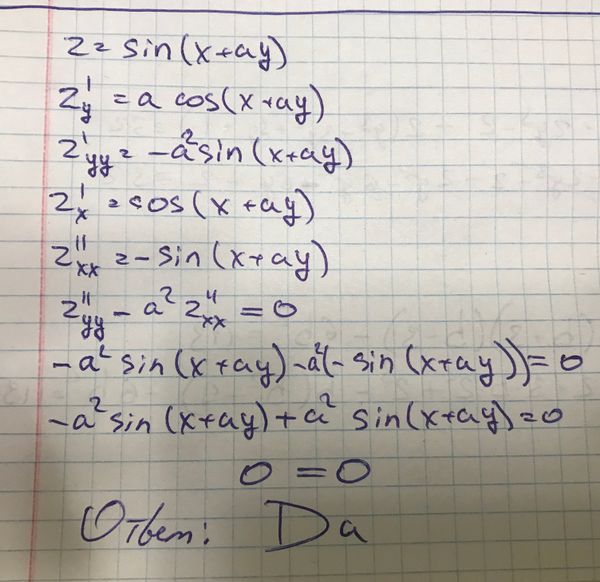 z = sin(x+ay)
z'y = a cos(x+ay)
z'yy = -a² sin(x+ay)
z'x = cos(x+ay)
z''xx = -sin(x+ay)
z''yy - a² z''xx = 0
-a² sin(x+ay) -a²(-sin(x+ay)) = 0
-a² sin(x+ay) + a² sin(x+ay) = 0
0 = 0
Ответ: Да